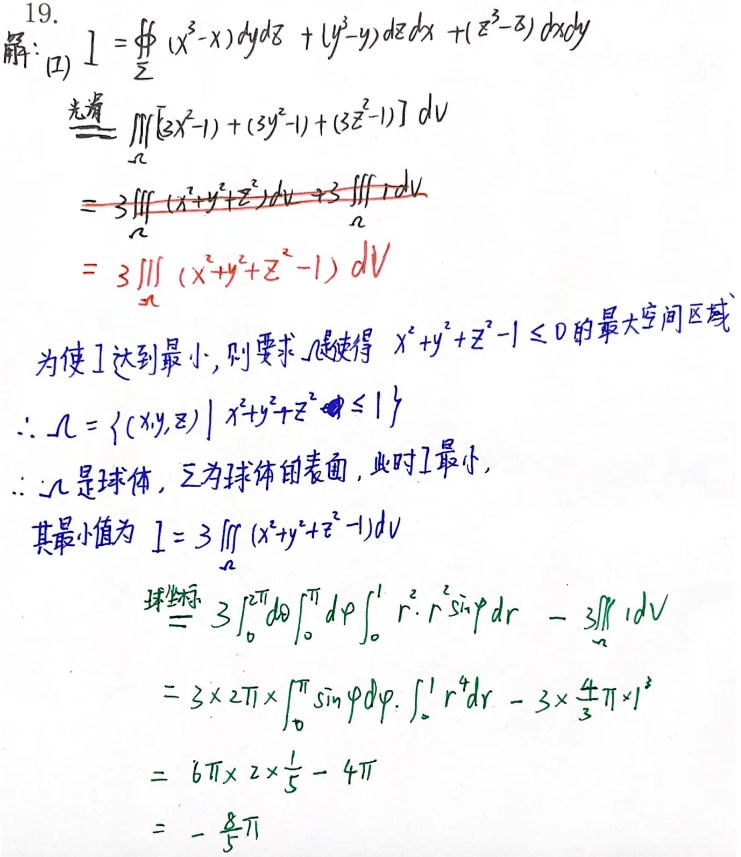 19.
解: (1) I = ∯_Σ (x³-x)dydz + (y³-y)dzdx + (z³-z)dxdy
光滑 = ∭_Ω [3x²-1) + (3y²-1) + (3z²-1)] dv
= 3∭_Ω (x²+y²+z²)dv + 3∭_Ω 1dv
= 3∭_Ω (x²+y²+z²-1) dV
为使I达到最小,则要求Ω是使得 x²+y²+z²-1≤0的最大空间区域
∴ Ω = {(x,y,z) | x²+y²+z² ≤1}
∴ Ω是球体, Σ为球体的表面, 此时I最小,
其最小值为 I = 3∭_Ω (x²+y²+z²-1)dv
球坐标 = 3∫₀^{2π}dθ∫₀^π dφ∫₀^1 r²·r²sinφdr - 3∭_Ω 1dV
= 3×2π×∫₀^π sinφdφ·∫₀^1 r⁴dr - 3×4/3π×1³
= 6π×2×1/5 - 4π
= -8/5π